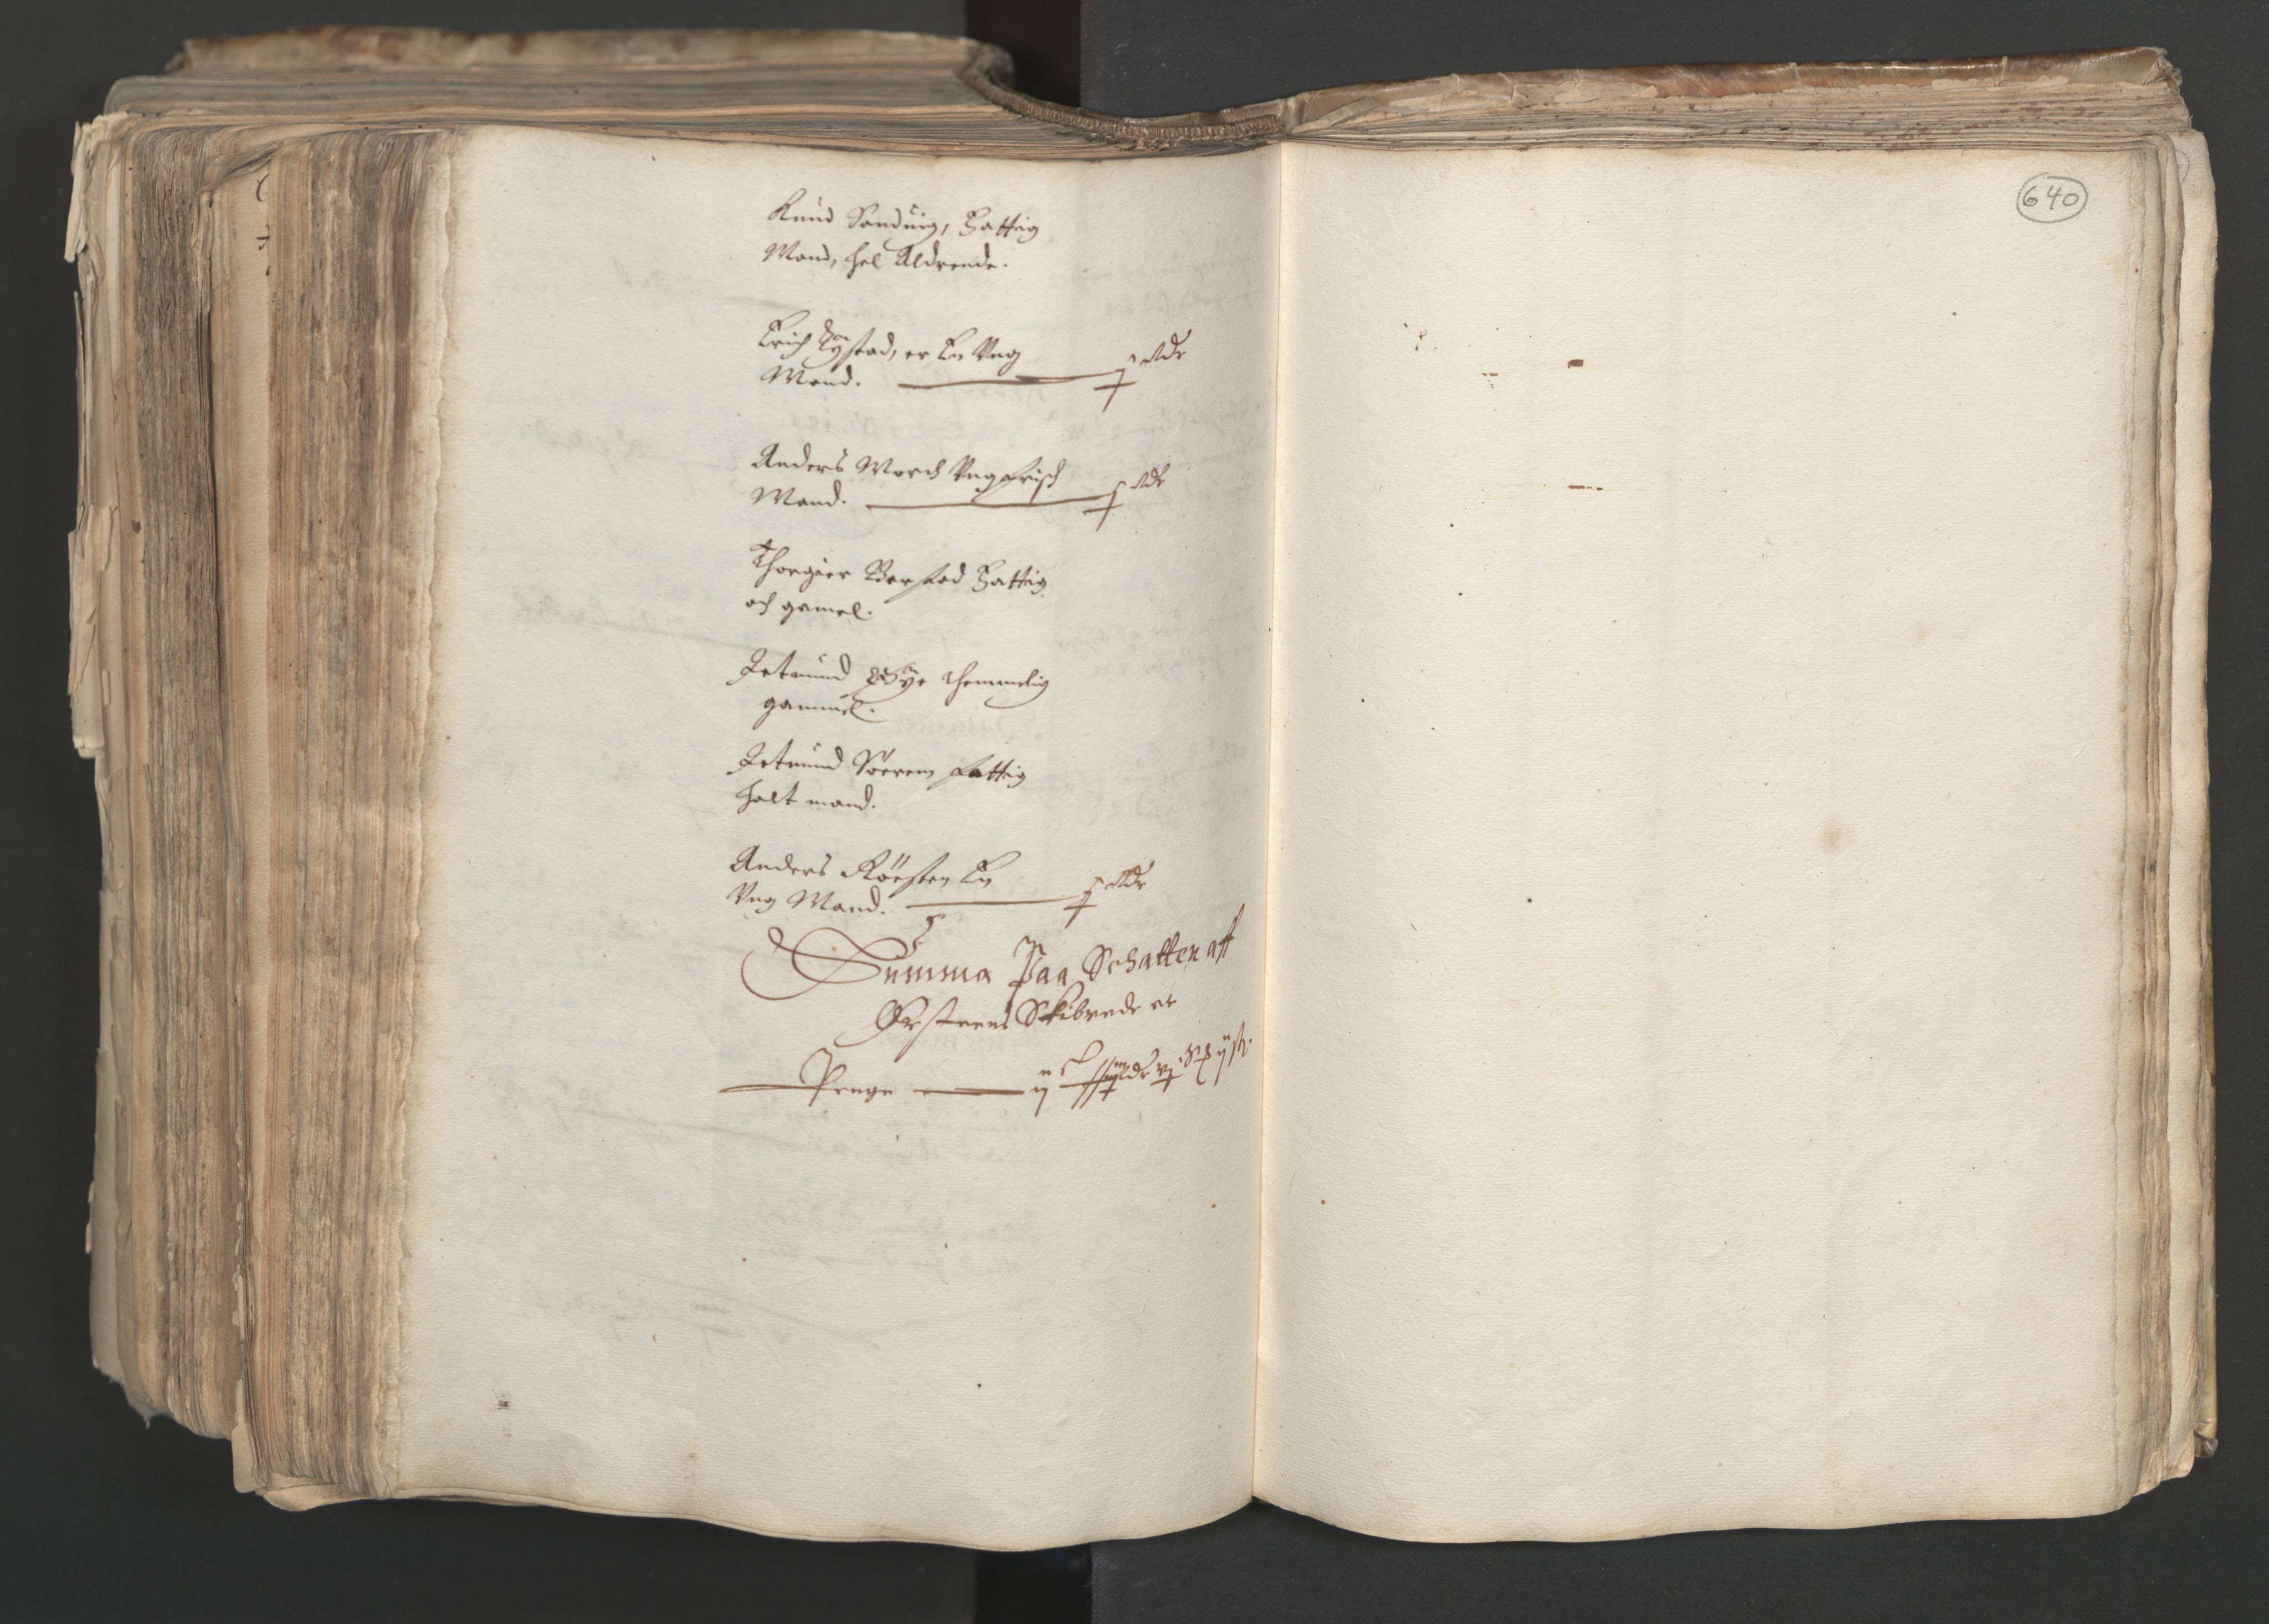 Knud Sanduig, Fattig
Mand, hel Aldrende.
Erich Tystad, er En Vng
Mand. j Rdr
Anders Morch Vng frisch
Mand. j Rdr
Thorgier Barstad Fattig
och gamel.
Jetmund themmelig
gammel.
Jetmund Söeren fattig
halt mand.
Anders Röesten En
Vng Mand. j Rdr
Summa Paa Schatten aff
Ørsteens Skibrede er
Penge
640